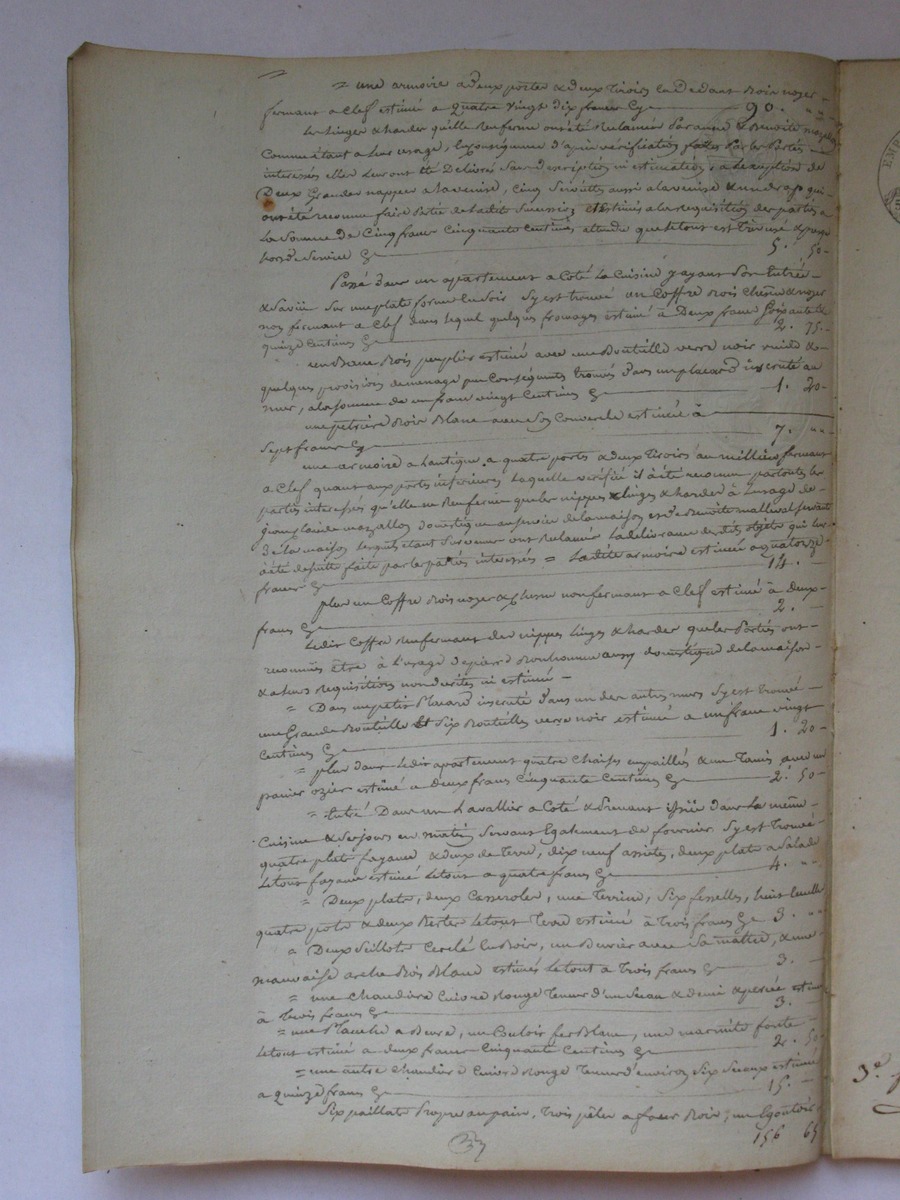 = une armoire a deux portes & deux tiroirs le dedans bois noyer
fermant a Clef estimé a quatre vingt dix francs Cy 90. " "
Les linges & hardes qu'elle renferme ont été reclamés par & Benoite
Comme étant a leur usage, en conséquence d'après vérification faites par les Partés
interessés elles leur ont été delivrés sans description ni estimation, a lexception de
Deux Grandes nappes a la venise, Cinq Serviettes aussi a la venise & un drap qui
ont été reconnu faire Partie de ladite Succession & Estimés a la requisition des parties a
La Somme de Cinq francs Cinquante Centimes, attendu que letout est très usé &
hors de Service Cy 5. 50
Passé dans un apartement a Coté La Cuisine y ayant Son Entrée
& Sur une plate forme En bois Sy est trouvé un Coffre Bois Chesne & noyer
non fermant a Clef dans lequel quelques fromages estimé à Deux francs Soixante &
quinze Centimes Cy 2. 75
un Banc Bois peuplier estimé avec une Bouteille verre noir vuide &
quelques provisions de menage peu Conséquents trouvés dans un placard incruté au
mur, a la somme de un franc vingt Centimes Cy 1. 20
une petrière Bois Blanc avec Son Couvercle estimée à
Sept francs Cy 7. " "
une armoire a lantique a quatre portes & deux tiroirs au millieu fermant
a Clef quant aux portes inferieures Laquelle vérifié il à été reconnu par toutes les
parties interessés qu'elle ne Renferme que les nippes Linges & hardes à Lusage de
domestique au service de la maison & de Benoite mallaval servante
De la maison lesquels étant Survenus ont Reclamés la délivrance desdits objets qui leur
à été de suitte faitte par les partiés interessés = Ladite armoire estimée a quatorze
francs Cy 14. -
plus un Coffre Bois noyer & Chesne non fermant a Clef estimé à deux
francs Cy 2. -
Ledit Coffre Renfermant des nippes Linges & hardes que les Partiés ont
reconnuës être à l'usage de pierre Bonhomme aussy domestique de la maison
& a leurs requisitions non decrites ni estimé -
= Dans un petit Placard incruté dans un des autres murs Sy est trouvé
une Grande Bouteille Et Six Bouteilles verre noir estimé a un franc vingt
Centimes Cy 1. 20
= plus dans Ledit apartement quatre Chaises empaillés & un Tamis avec un
panier ozier estimé a deux francs Cinquante Centimes Cy 2. 50
= Entré Dans un Lavallier a Coté & Prenant issüe dans La même
Cuisine & Ses jours en matin Servant Egalement de fournier Sy est Trouvé
quatre plats fayance & deux de Terre, dix neuf assietes, deux plats a Salade
Le tout fayance estimé Letout a quatre francs Cy 4. " "
= Deux plats, deux Casseroles, une Terrine, Six feselles,
quatre pots & deux Letout Terre estimé à Trois francs Cy 3. " "
= Deux Seillots Cerclé En Bois, un avec Sa & une
mauvaise arche Bois Blanc estimés Le tout a Trois francs Cy 3. -
= une Chaudière Cuivre Rouge Teneur d'un Seau & demi & percée estimé
à Trois francs Cy 3. -
= une Planche a un Couloir fer Blanc, une marmite fonte
Le tout estimé a deux francs Cinquante Centimes Cy 2. 50
= une autre Chaudière Cuivre Rouge Teneur d'environ Six Seaux estimé
a quinze francs Cy 15. -
Six paillats Propre au pain, Trois a Bois, un Egoutoir
156 65